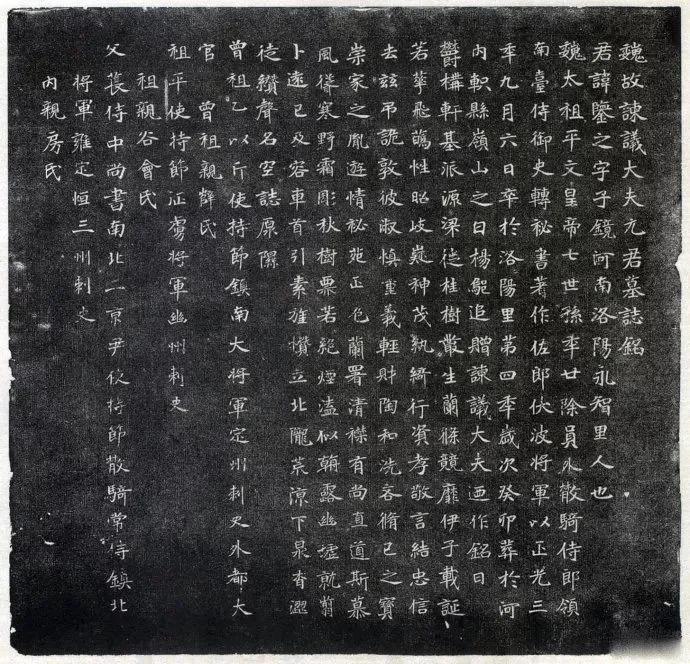 魏故諫議大夫元君墓誌銘
君諱鑒之字子鏡河南洛陽永智里人也
魏太祖平文皇帝七世孫年廿除員外散騎侍郎領
南臺侍御史轉祕書著作佐郎伏波將軍以正光三
年九月六日卒於洛陽里第四年歲次癸卯葬於河
內軹縣嶺山之日楊髢追贈諫議大夫迺作銘曰
欝構軒基派源梁徙桂樹叢生蘭條競靡伊子載誕
若華飛鷮性昭歧嶷神茂紈綺行資孝敬言結忠信
去玆弔詭敦彼淑慎重義輕財陶和洗吝脩已之寶
崇家之胤遊情祕苑正色蘭署清襟有尚直道斯慕
風悽寒野霜彫秋樹票若絕煙溘似朝露幽墟就翦
卜遠已及容車首引素旌攢立北隴荒涼下泉杳澀
徒纘聲名空誌原隰
曾祖乙以斤使持節鎮南大將軍定州刺史外都大
官 曾祖親薛氏
祖平使持節征虜將軍幽州刺史
祖親谷會氏
父萇侍中尚書南北二京尹使持節散騎常侍鎮北
將軍雍定恒三州刺史
內親房氏